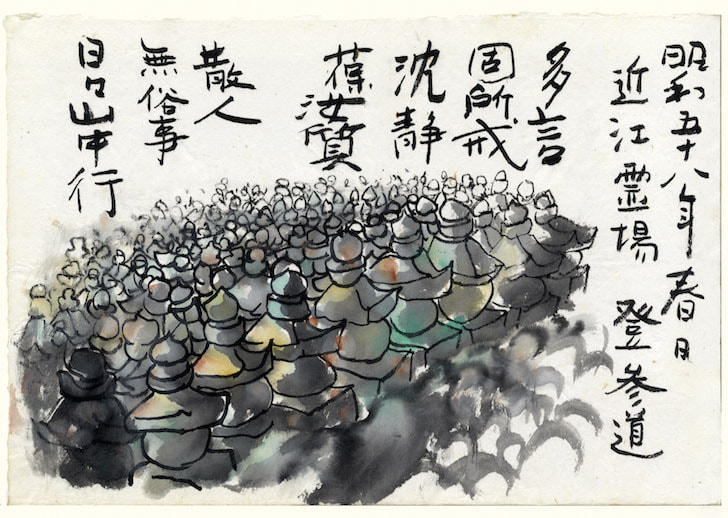 昭和五十八年春日
近江霊場 登参道
多言
固所戒
沈静
葆汝質
散人
無俗事
日日山中行